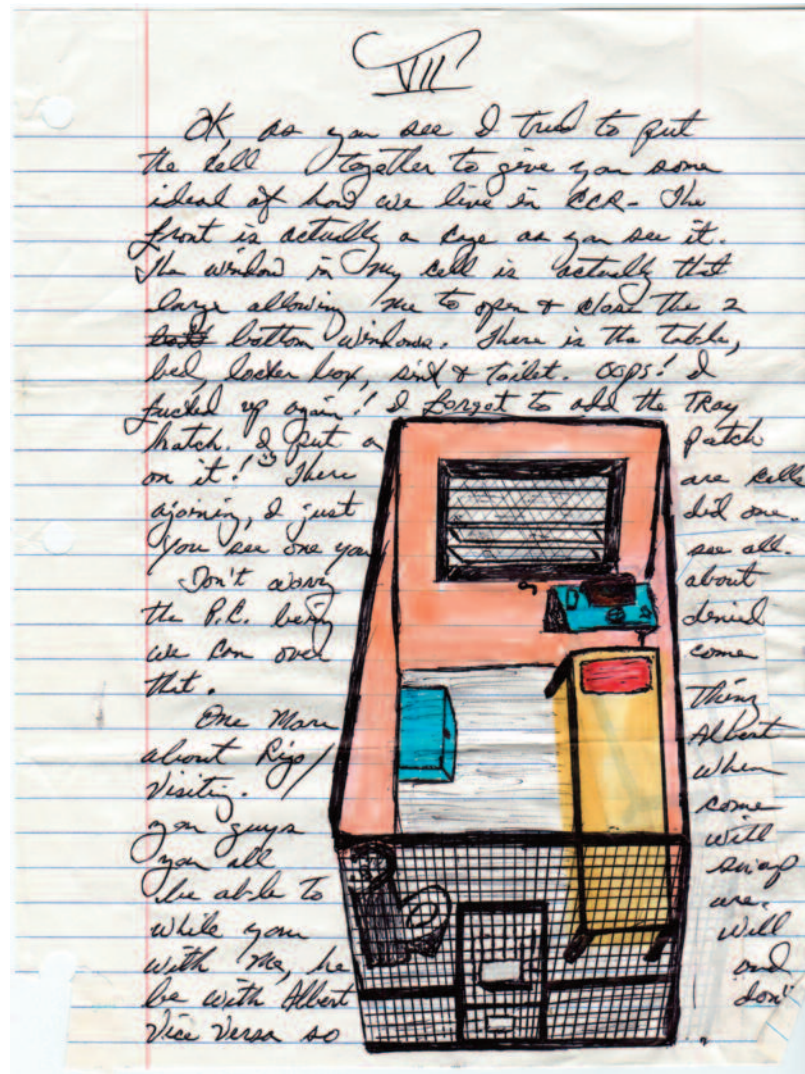 VII
OK, as you see I tried to put
the cell together to give you some
ideal of how we live in CCR- The
front is actually a cage as you see it.
The window in my cell is actually that
large allowing me to open & close the 2
bottom windows. There is the table,
bed, locker box, sink & toilet. OOPS! I
fucked up again! I forget to add the TRay
hatch. I put a patch
on it! There are cells
ajoining, I just did one.
You see one you see all.
Don't worry about
the P.C. being denied
we can over come
that.
One More Thing
about Rigo/ Albert
Visiting. when
you guys come
you all will
be able to swap
while you are.
with me, he will
be with Albert and
Vice Versa so don't